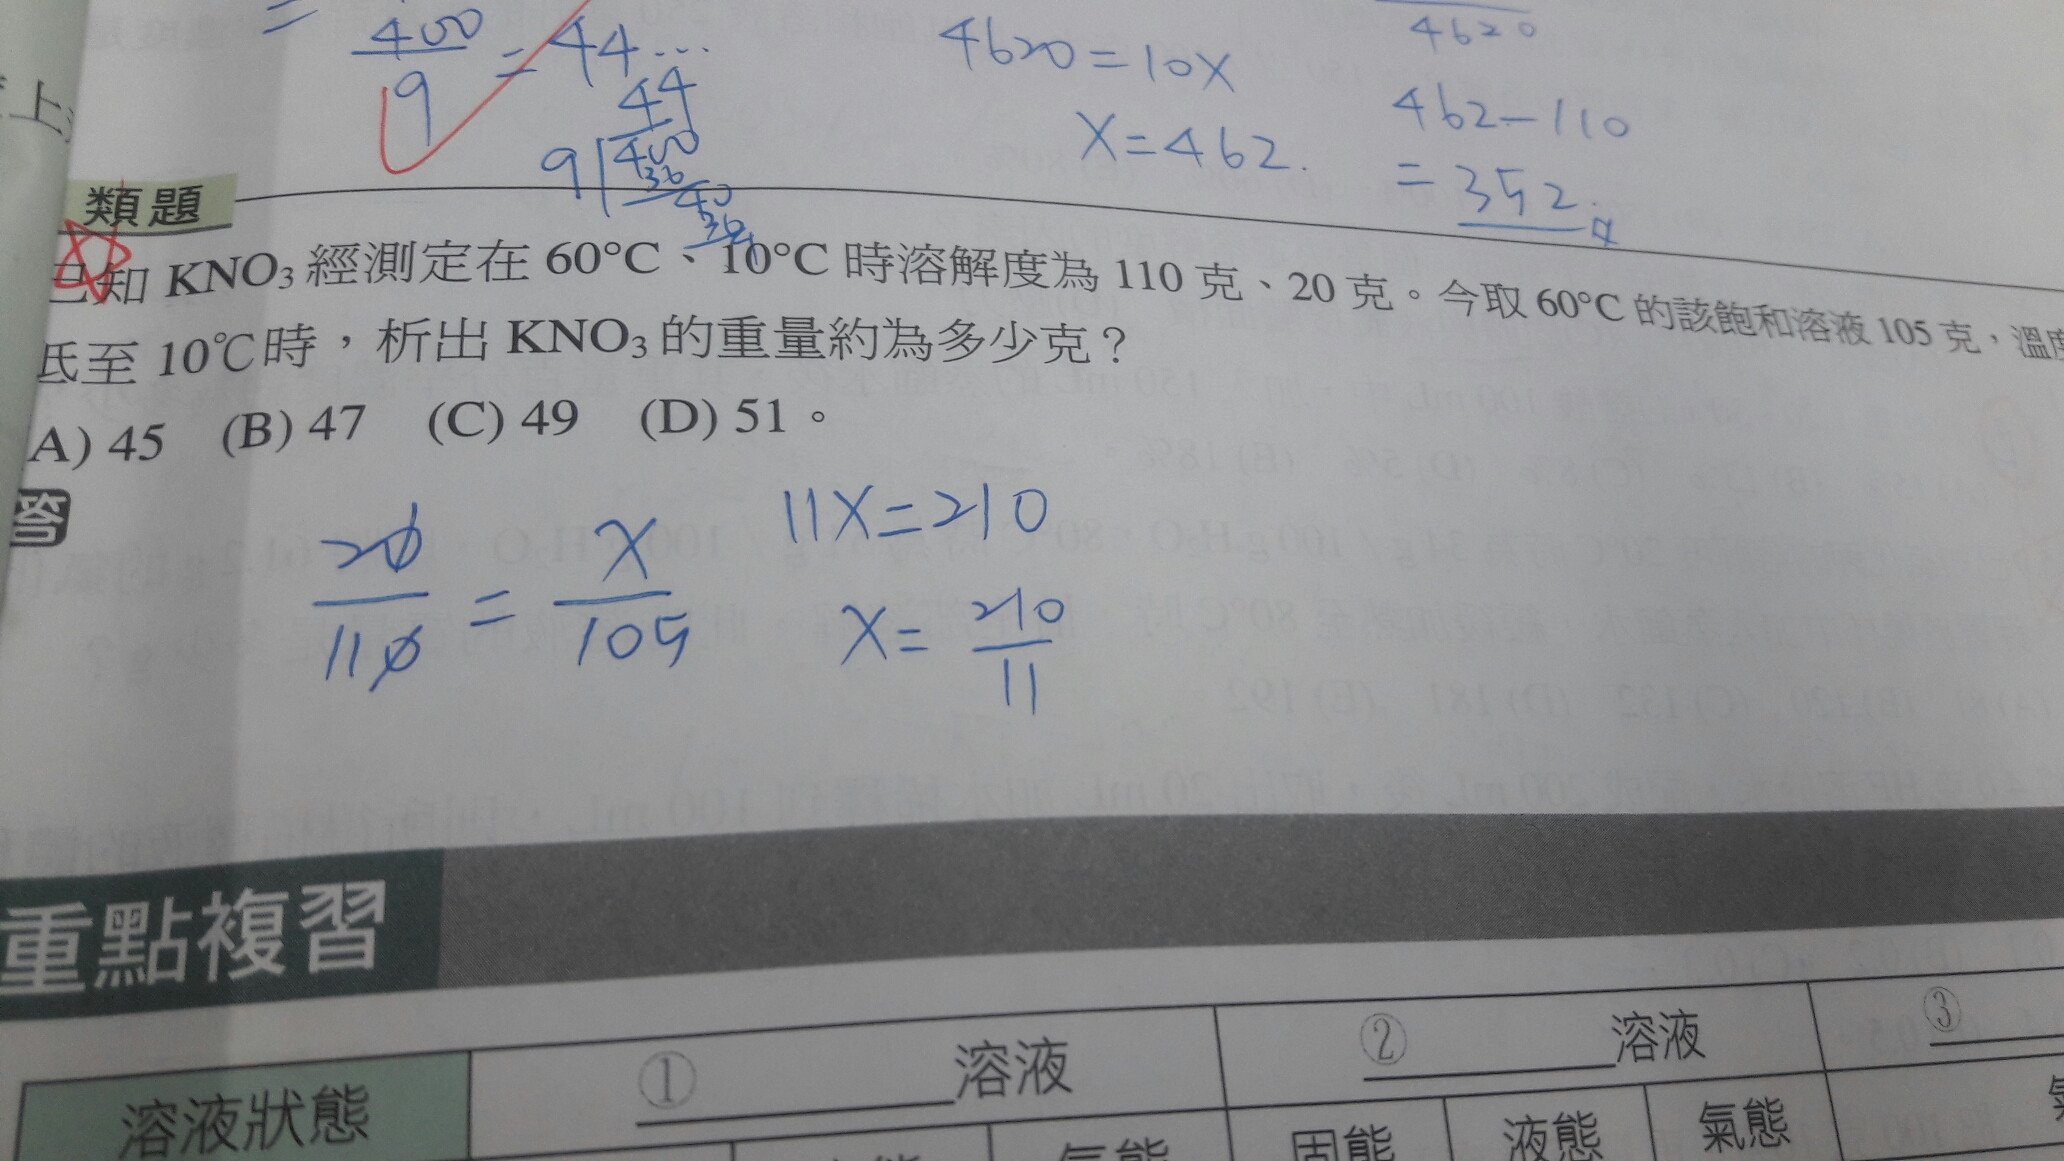 = 400/9 = 44...
44
9 400
36
40
36
4
4620 = 10X
X = 462.
4620
462-110
= 352
上
類題
已知 KNO₃ 經測定在 60°C、10°C 時溶解度為 110 克、20 克。今取 60°C 的該飽和溶液 105 克,溫度
至 10℃時,析出 KNO₃ 的重量約為多少克?
A) 45 (B) 47 (C) 49 (D) 51。
答
20/110 = X/105
11X=210
X= 210/11
重點複習
溶液狀態 ① 溶液 ② 溶液 ③
氣態 固態 液態 氣態